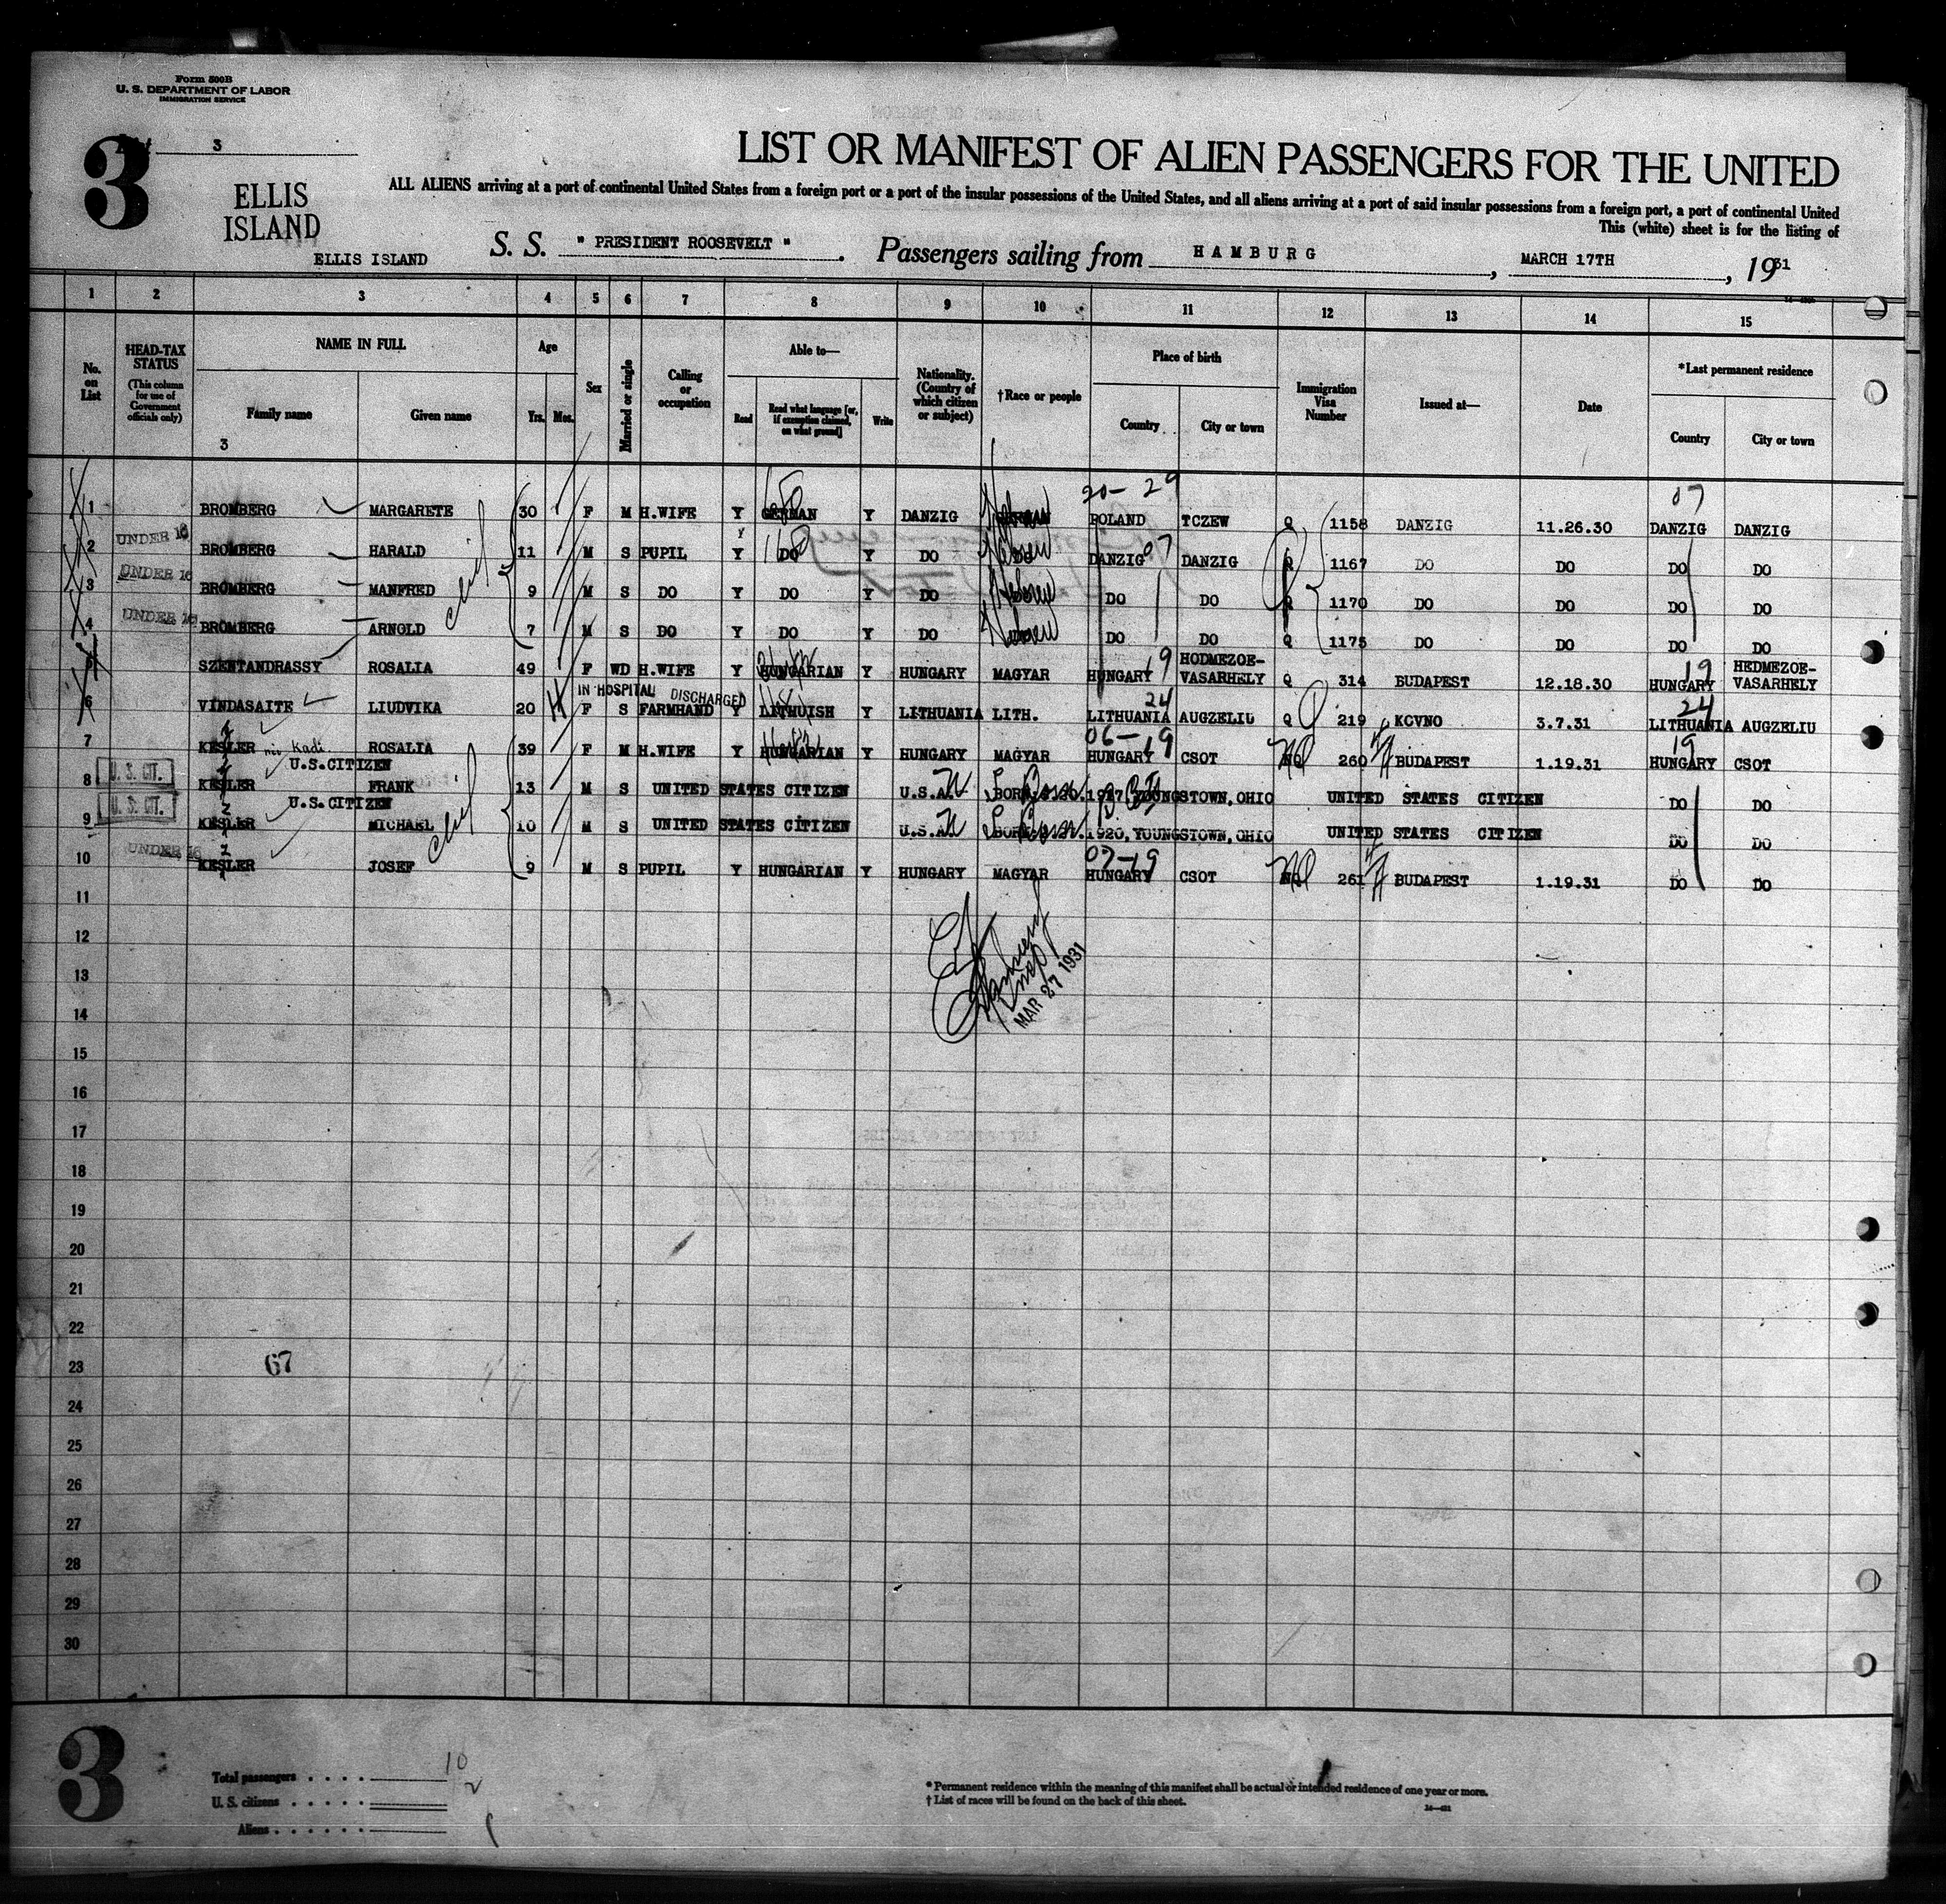 Form 500B
U. S. DEPARTMENT OF LABOR
IMMIGRATION SERVICE
3
List 3
ELLIS
ISLAND
ELLIS ISLAND
LIST OR MANIFEST OF ALIEN PASSENGERS FOR THE UNITED
ALL ALIENS arriving at a port of continental United States from a foreign port or a port of the insular possessions of the United States, and all aliens arriving at a port of said insular possessions from a foreign port, a port of continental United
This (white) sheet is for the listing of
S. S. " PRESIDENT ROOSEVELT ". Passengers sailing from HAMBURG, MARCH 17TH, 1931
1 2 3 4 5 6 7 8 9 10 11 12 13 14 15
No. on List
HEAD-TAX STATUS (This column for use of Government officials only)
NAME IN FULL Family name Given name
3
Age Yrs. Mos.
Sex
Married or single
Calling or occupation
Able to— Read Read what language [or, if exemption claimed, on what ground] Write
Nationality. (Country of which citizen or subject)
†Race or people
Place of birth Country City or town
Immigration Visa Number
Issued at—
Date
*Last permanent residence Country City or town
20- 29 07
1 BROMBERG MARGARETE 30 F M H.WIFE Y GERMAN Y DANZIG Hebrew POLAND TCZEW Q 1158 DANZIG 11.26.30 DANZIG DANZIG
UNDER 16
2 BROMBERG HARALD 11 M S PUPIL Y DO Y DO Hebrew DANZIG 07 DANZIG Q 1167 DO DO DO DO
UNDER 16
3 BROMBERG MANFRED 9 M S DO Y DO Y DO Hebrew DO DO Q 1170 DO DO DO DO
UNDER 16
4 BROMBERG ARNOLD 7 M S DO Y DO Y DO Hebrew DO DO Q 1175 DO DO DO DO
5 SZENTANDRASSY ROSALIA 49 F WD H.WIFE Y HUNGARIAN Y HUNGARY MAGYAR HUNGARY 19 HODMEZOE-VASARHELY Q 314 BUDAPEST 12.18.30 19 HUNGARY HEDMEZOE-VASARHELY
IN HOSPITAL DISCHARGED
6 VINDASAITE LIUDVIKA 20 F S FARMHAND Y LITHUISH Y LITHUANIA LITH. 24 LITHUANIA AUGZELIU Q 219 KOVNO 3.7.31 24 LITHUANIA AUGZELIU
7 KESLER Kadi ROSALIA 39 F M H.WIFE Y HUNGARIAN Y HUNGARY MAGYAR 06-19 HUNGARY CSOT 260 BUDAPEST 1.19.31 19 HUNGARY CSOT
U. S. CIT. U.S.CITIZEN
8 KESLER FRANK 13 M S UNITED STATES CITIZEN U.S.A. BORN 1917, YOUNGSTOWN, OHIO UNITED STATES CITIZEN DO DO
U. S. CIT. U.S.CITIZEN
9 KESLER MICHAEL 10 M S UNITED STATES CITIZEN U.S.A. BORN 1920, YOUNGSTOWN, OHIO UNITED STATES CITIZEN DO DO
UNDER 16
10 KESLER JOSEF 9 M S PUPIL Y HUNGARIAN Y HUNGARY MAGYAR 07-19 HUNGARY CSOT 261 BUDAPEST 1.19.31 DO DO
11
12
13
MAR 27 1931
14
15
16
17
18
19
20
21
22
23 67
24
25
26
27
28
29
30
3
Total passengers 10
U. S. citizens 2
Aliens
* Permanent residence within the meaning of this manifest shall be actual or intended residence of one year or more.
† List of races will be found on the back of this sheet.